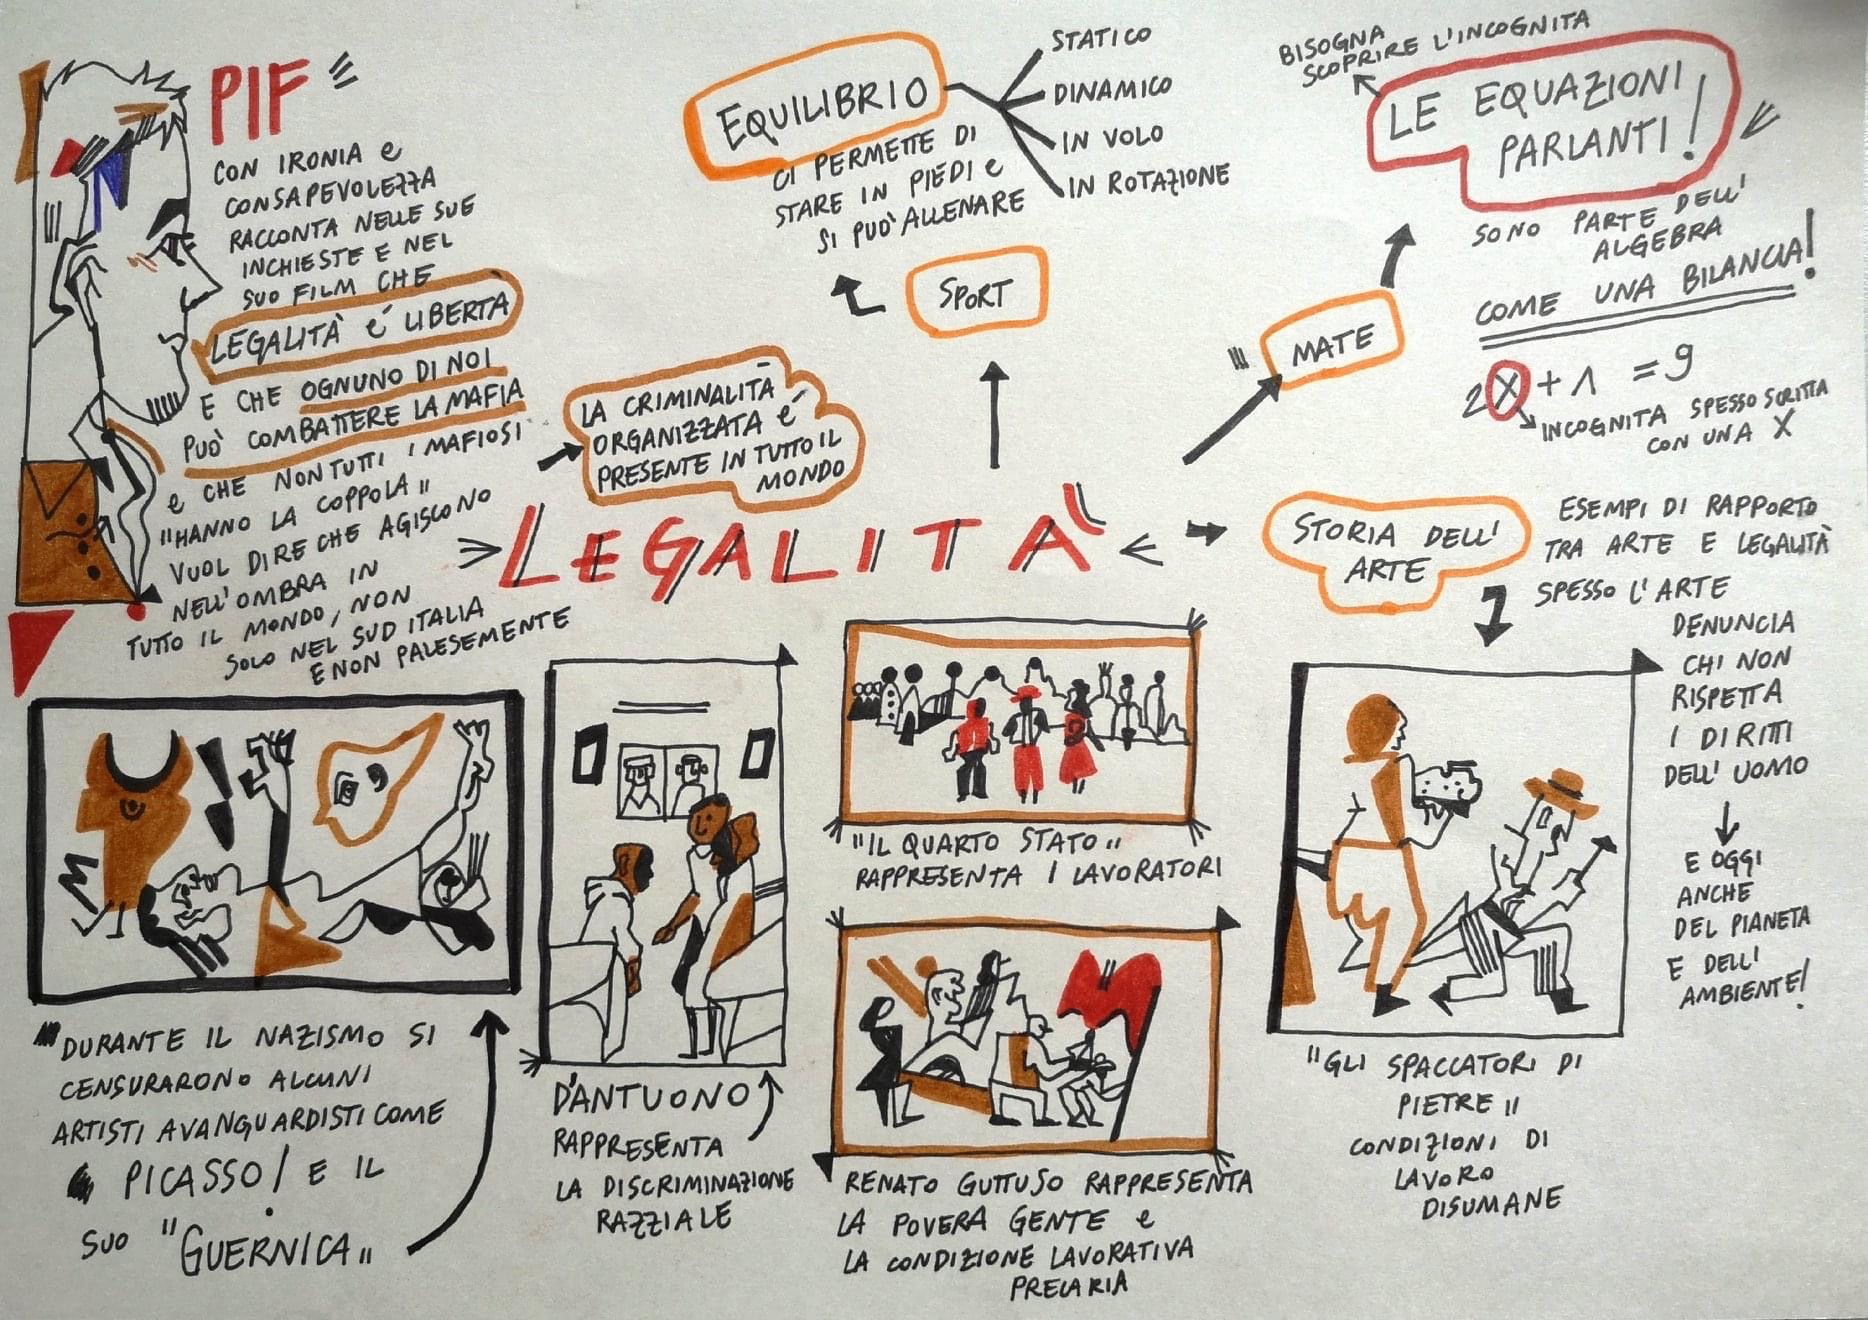 PIF
CON IRONIA e
CONSAPEVOLEZZA
RACCONTA NELLE SUE
INCHIESTE E NEL
SUO FILM CHE
LEGALITÀ e' LIBERTÀ
E CHE OGNUNO DI NOI
PUÒ COMBATTERE LA MAFIA
e CHE NON TUTTI I MAFIOSI
"HANNO LA COPPOLA"
VUOL DIRE CHE AGISCONO
NELL'OMBRA IN
TUTTO IL MONDO, NON
SOLO NEL SUD ITALIA
E NON PALESEMENTE
LA CRIMINALITÀ
ORGANIZZATA e'
PRESENTE IN TUTTO IL
MONDO
EQUILIBRIO
STATICO
DINAMICO
IN VOLO
IN ROTAZIONE
CI PERMETTE DI
STARE IN PIEDI e
SI PUÒ ALLENARE
SPORT
BISOGNA
SCOPRIRE L'INCOGNITA
LE EQUAZIONI
PARLANTI!
SONO PARTE DELL'
ALGEBRA
COME UNA BILANCIA!
MATE
2X + 1 = 9
INCOGNITA SPESSO SCRITTA
CON UNA X
LEGALITÀ
STORIA DELL'
ARTE
ESEMPI DI RAPPORTO
TRA ARTE E LEGALITÀ
SPESSO L'ARTE
DENUNCIA
CHI NON
RISPETTA
I DIRITTI
DELL' UOMO
E OGGI
ANCHE
DEL PIANETA
E DELL'
AMBIENTE!
DURANTE IL NAZISMO SI
CENSURARONO ALCUNI
ARTISTI AVANGUARDISTI COME
PICASSO! E IL
SUO "GUERNICA"
D'ANTUONO
RAPPRESENTA
LA DISCRIMINAZIONE
RAZZIALE
"IL QUARTO STATO"
RAPPRESENTA I LAVORATORI
RENATO GUTTUSO RAPPRESENTA
LA POVERA GENTE e
LA CONDIZIONE LAVORATIVA
PRECARIA
"GLI SPACCATORI DI
PIETRE"
CONDIZIONI DI
LAVORO
DISUMANE